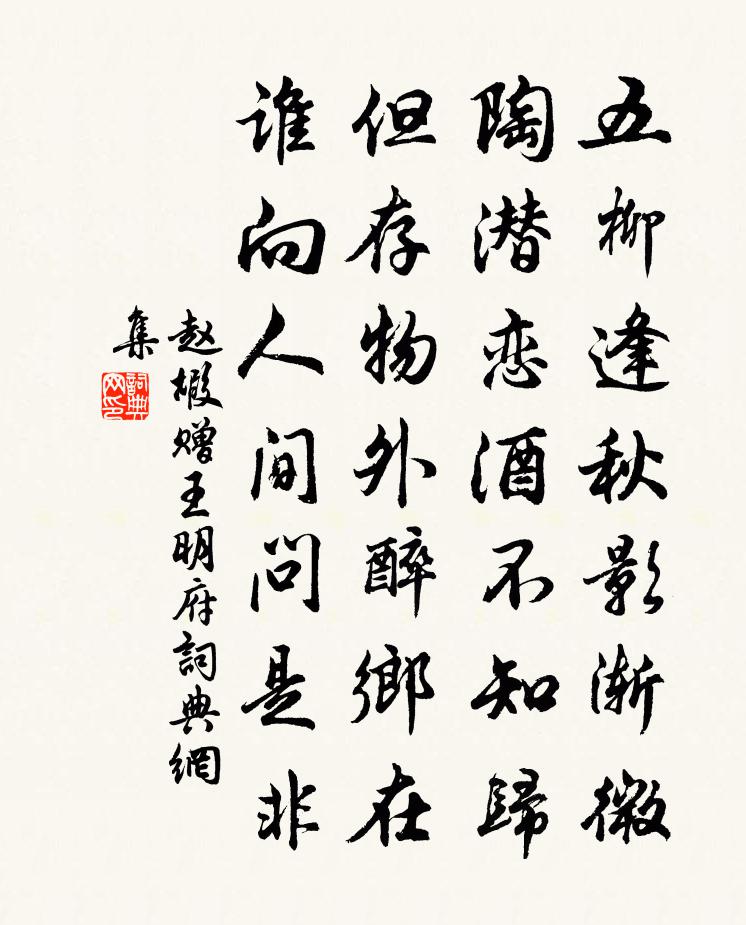 五柳逢秋影渐微
陶潜恋酒不知歸
但存物外醉鄉在
谁向人间问是非
赵嘏赠王明府詞典網
集
詞典
网印